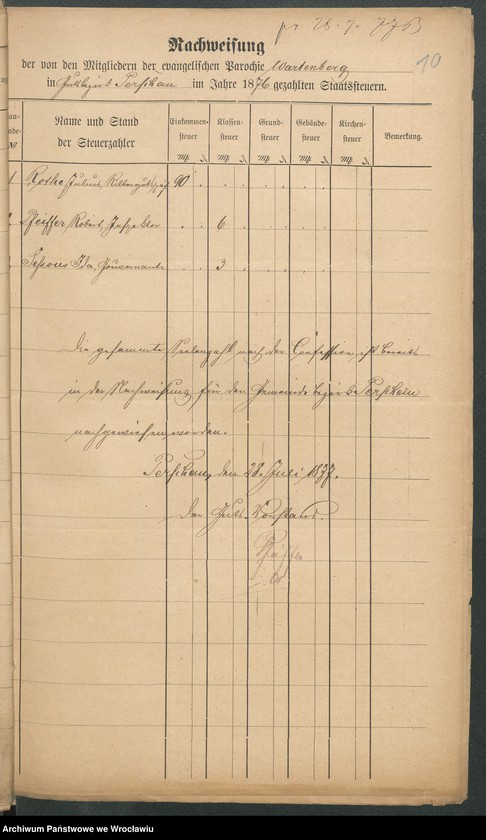 pr. 28. 7. 77
10
Nachweisung
der von den Mitgliedern der evangelischen Parochie Wartenberg
in Gutsbezirk Perschkau im Jahre 1876 gezahlten Staatssteuern.
Name und Stand der Steuerzahler
Einkommen-steuer
Klassen-steuer
Grund-steuer
Gebäude-steuer
Kirchen-steuer
Bemerkung.
Rothe Julius, 90
Pfeiffer, Robert, Inspektor 6
Ida, Gouvernante 3
Die gesammte Seelenzahl nach der Confession ist bereits
in der Nachweisung für den Gemeinde Bezirk Perschkau
nachgewiesen worden.
Perschkau, den 28. Juli 1877.
Der Guts-Vorstand.
Pfeiffer
Archiwum Państwowe we Wrocławiu